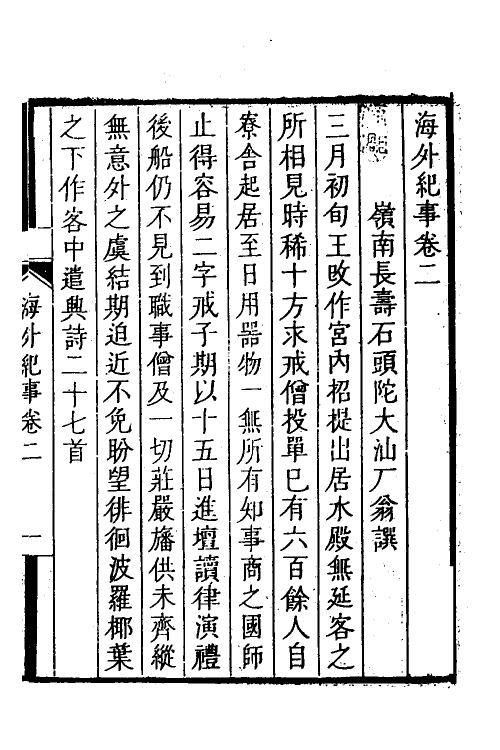 海外紀事卷二
嶺南長壽石頭陀大汕厂翁譔
三月初旬王改作宮內招提出居水殿無延客之
所相見時稀十方求戒僧投單已有六百餘人自
寮舍起居至日用器物一無所有知事商之國師
止得容易二字戒子期以十五日進壇讀律演禮
後船仍不見到職事僧及一切莊嚴旛供未齊縱
無意外之虞結期迫近不免盼望徘徊波羅椰葉
之下作客中遣興詩二十七首
海外紀事卷二
一